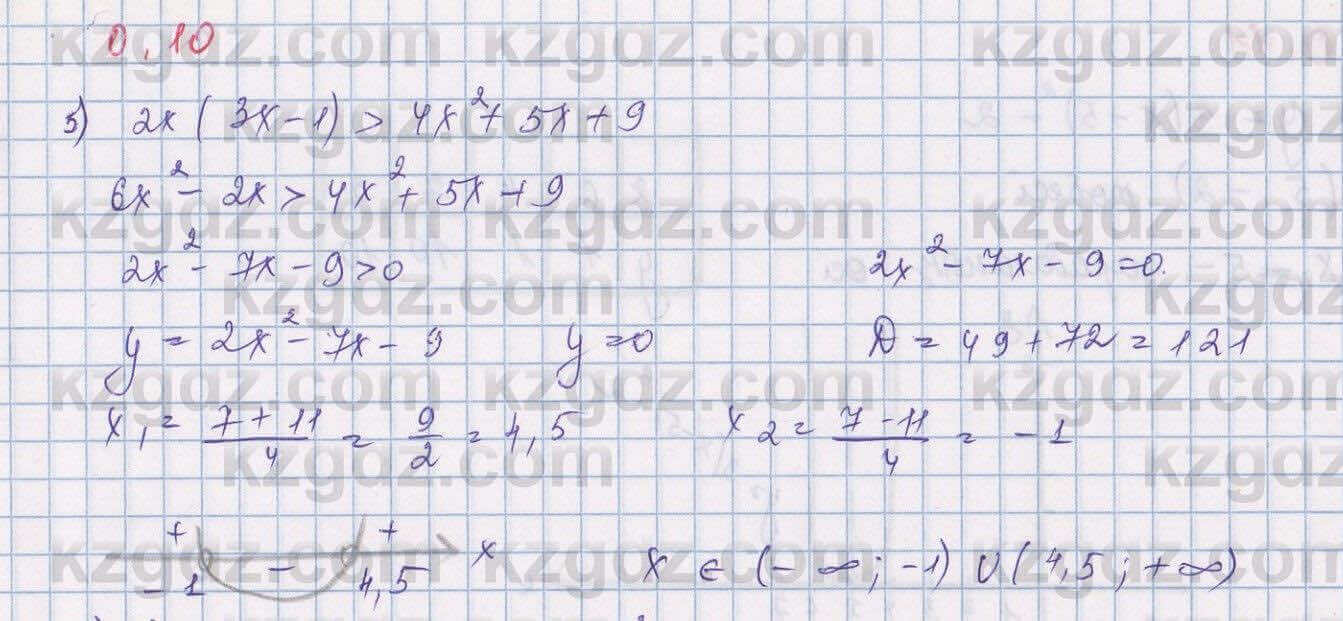 0.10
5) 2x(3x-1) > 4x²+5x+9
6x²-2x > 4x²+5x+9
2x²-7x-9>0 2x²-7x-9=0.
y = 2x²-7x-9 y=0 D = 49+72=121
x₁ = (7+11)/4 = 9/2 = 4,5 x₂ = (7-11)/4 = -1
+ - + x
-1 4,5 x ∈ (-∞; -1) ∪ (4,5; +∞)
kzgdz.com